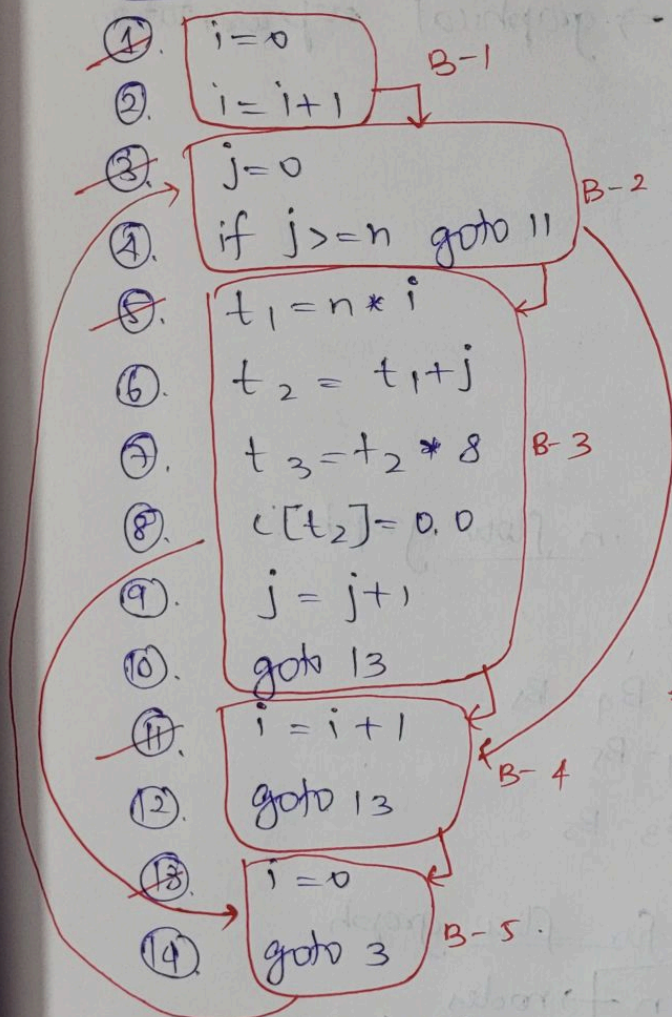 ①. i=0
②. i=i+1
B-1
③. j=0
④. if j>=n goto 11
B-2
⑤. t1=n* i
⑥. t2 = t1+j
⑦. t3=t2 * 8
B-3
⑧. c[t2]=0.0
⑨. j = j+1
⑩. goto 13
⑪. i = i+1
B-4
⑫. goto 13
⑬. i=0
⑭ goto 3
B-5.